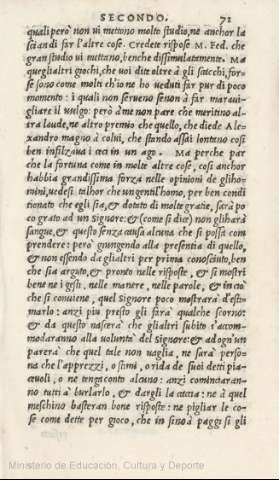 SECONDO. 71
quali però non ui mettano molto studio, ne anchor la
sciandi far l'altre cose. Credete rispose M. Fed. che
gran studio ui mettano, benche dissimulatamente. Ma
quegli altri giochi, che uoi dite oltre à gli scacchi, for-
se sono come molti ch'io ne ho ueduti far pur di poco
momento: i quali non serueno se non à far maraui-
gliare il uulgo: però à me non pare che meritino al-
tra laude, ne altro premio che quello, che diede Ale-
xandro magno à colui, che stando assai lontano così
ben infilzaua i ceci in un ago. Ma perche par
che la fortuna come in molte altre cose, così anchor
habbia grandissima forza nelle opinioni de gliho-
mini, uedesi talhor che un gentil'homo, per ben condi
tionato che egli sia, & dotato di molte gratie, sarà po
co grato ad un Signore: & (come si dice) non gli harà
sangue, & questo senza causa alcuna che si possa com
prendere: però giungendo alla presentia di quello,
& non essendo da gli altri per prima conosciuto, ben
che sia arguto, & pronto nelle risposte, & si mostri
bene ne i gesti, nelle manere, nelle parole, & in ciò
che si conuiene, quel Signore poco mostrarà d'esti-
marlo: anzi piu presto gli farà qualche scorno:
& da questo nascerà che gli altri subito s'accom-
modaranno alla uoluntà del Signore: & ad ogn'un
parerà che quel tale non uaglia, ne sarà perso-
na che l'apprezzi, o stimi, o rida de suoi detti pia-
ceuoli, o ne tenga conto alcuno: anzi cominciaran-
no tutti à burlarlo, & dargli la caccia: ne à quel
meschino basteran bone risposte: ne pigliar le co-
se come dette per gioco, che in sino à paggi si gli
Ministerio de Educación, Cultura y Deporte